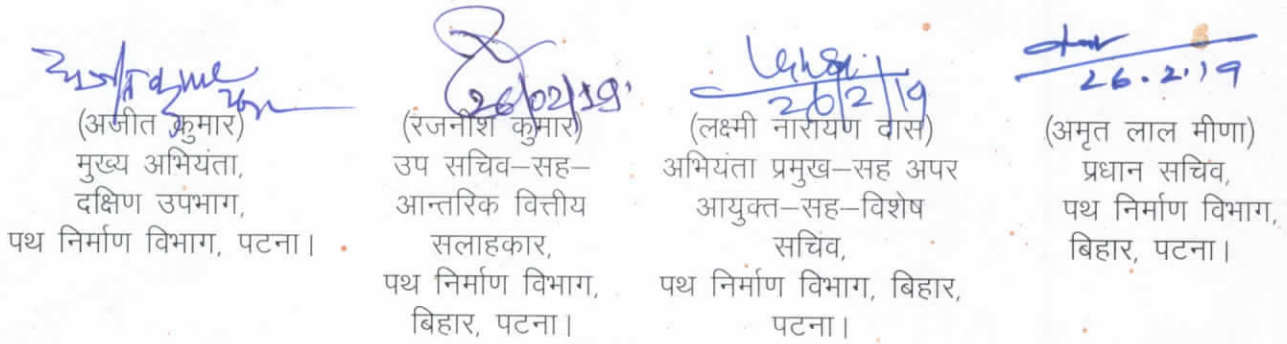 26/02/19
26/2/19
26.2.19
(अजीत कुमार)
मुख्य अभियंता,
दक्षिण उपभाग,
पथ निर्माण विभाग, पटना।
(रजनीश कुमार)
उप सचिव–सह–
आन्तरिक वित्तीय
सलाहकार,
पथ निर्माण विभाग,
बिहार, पटना।
(लक्ष्मी नारायण दास)
अभियंता प्रमुख–सह अपर
आयुक्त–सह–विशेष
सचिव,
पथ निर्माण विभाग, बिहार,
पटना।
(अमृत लाल मीणा)
प्रधान सचिव,
पथ निर्माण विभाग,
बिहार, पटना।